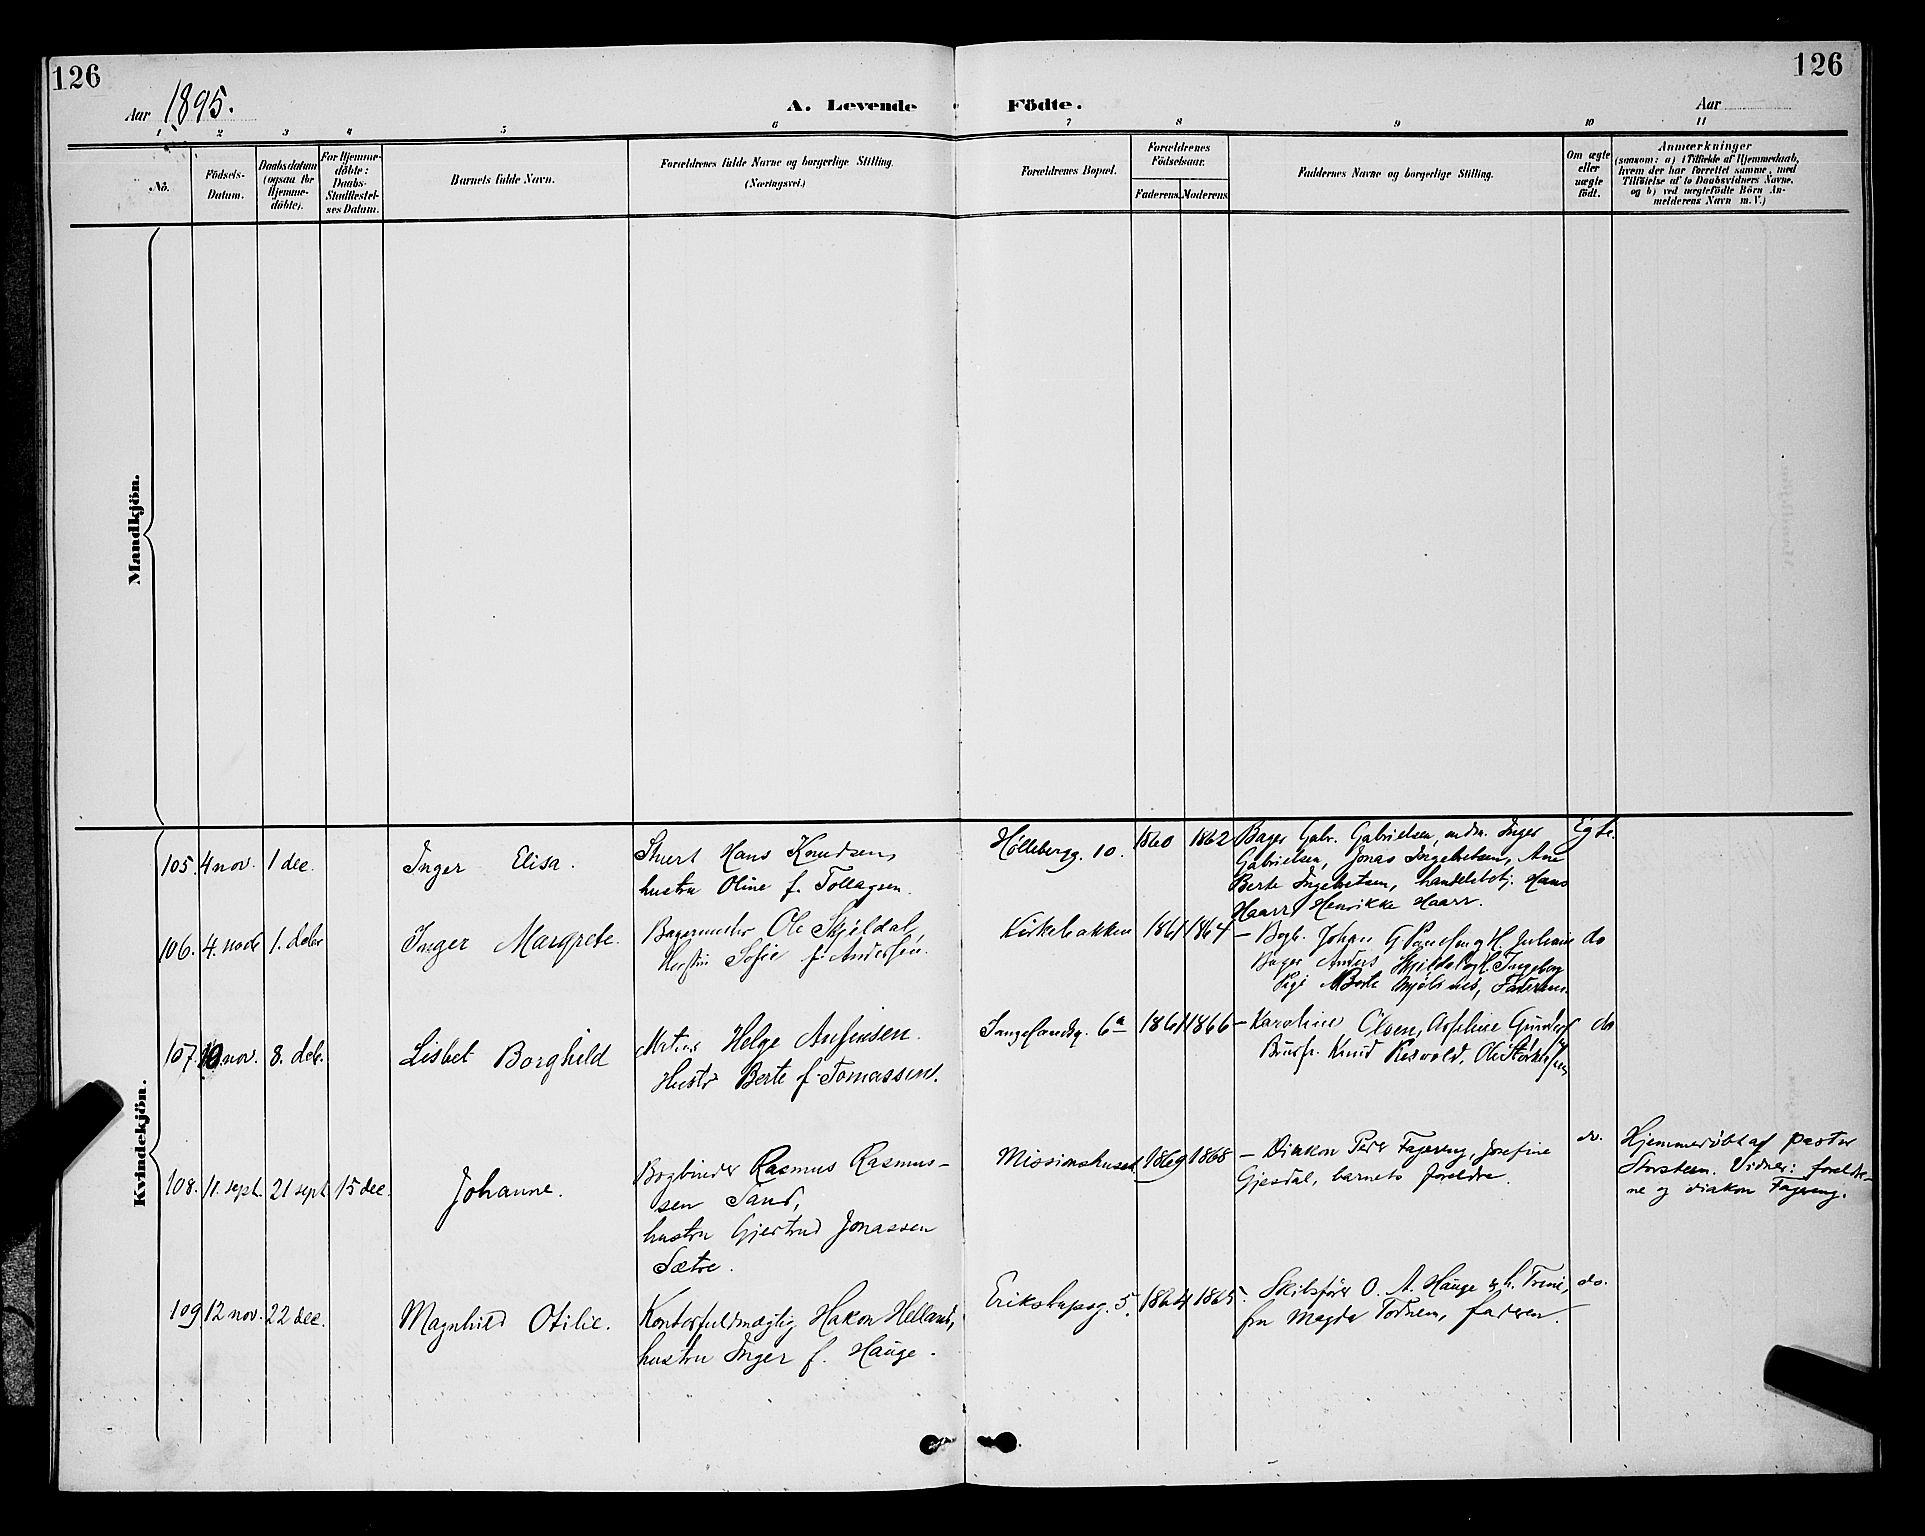 126
126
Aar 1895.
A. Levende Födte.
Aar
1 2 3 4 5 6 7 8 9 10 11
Nö.
Födsels-
Datum.
Daabsdatum
(ogsaa for
Hjemme-
döbte).
For Hjemme-
döbte:
Daabs-
Stadfæstel-
ses Datum.
Barnets fulde Navn.
Forældrenes fulde Navne og borgerlige Stilling.
(Næringsvei.)
Forældrenes Bopæl.
Forældrenes
Födselsaar.
Faderens. Moderens.
Faddernes Navne og borgerlige Stilling.
Om ægte
eller
uægte
födt.
Anmærkninger
(saasom: a) i Tilfælde af Hjemmedaab,
hvem der har forrettet samme, med
Tilföielse af to Daabsvidners Navne,
og b) ved uægtefödte Börn An-
melderens Navn m. V.)
Mandkjön.
Kvindekjön.
105. 4 nov. 1 dec.
Inger Elisa.
Hans Knudsen,
hustru Oline f. Tollagsen.
Hollebergg. 10.
1860 1862
Bager Gabr. Gabrielsen, Inger
Gabrielsen, Jonas Ingebretsen, Ane
Berte Ingebretsen, handelsbetj. Hans
Haarr, Henrikke Haarr.
Egte.
106. 4. 1.
Inger Margrete.
Bagermester Ole Skjeldal,
Sofie f. Andersen.
Kirkebakken
1861 1864
— Johan G. Juliane
Bager Anders Ingeborg
Berte Faderen.
do
107. 10 nov. 8. deb.
Lisbet Borghild
Helge
Berte f. Tomassen.
6a
1861 1866
— Karoline Olsen,
Knud
do
108. 11. sept. 21 sept 15 dec.
Johanne.
Bogbinder Rasmus Rasmus-
sen Sand,
hustru Gjertrud Jonassen
Sætre.
Missionshuset
1869 1868
— Diakon Peder Fagereng, Josefine
Gjesdal, barnets foreldre.
do.
Hjemmedøbt af pastor
Storsteen. Vidner: foreldre-
ne og diakon Fagereng.
109 12 nov. 22 dec.
Magnhild Otilie.
Kontorfuldmægtig Hakon Helland,
hustru Inger f. Hauge.
Erikstrupsg. 5.
1864 1865.
Skibsfører O. A. Hauge & h. Trine,
fru Magda Todnem, faderen.
do.